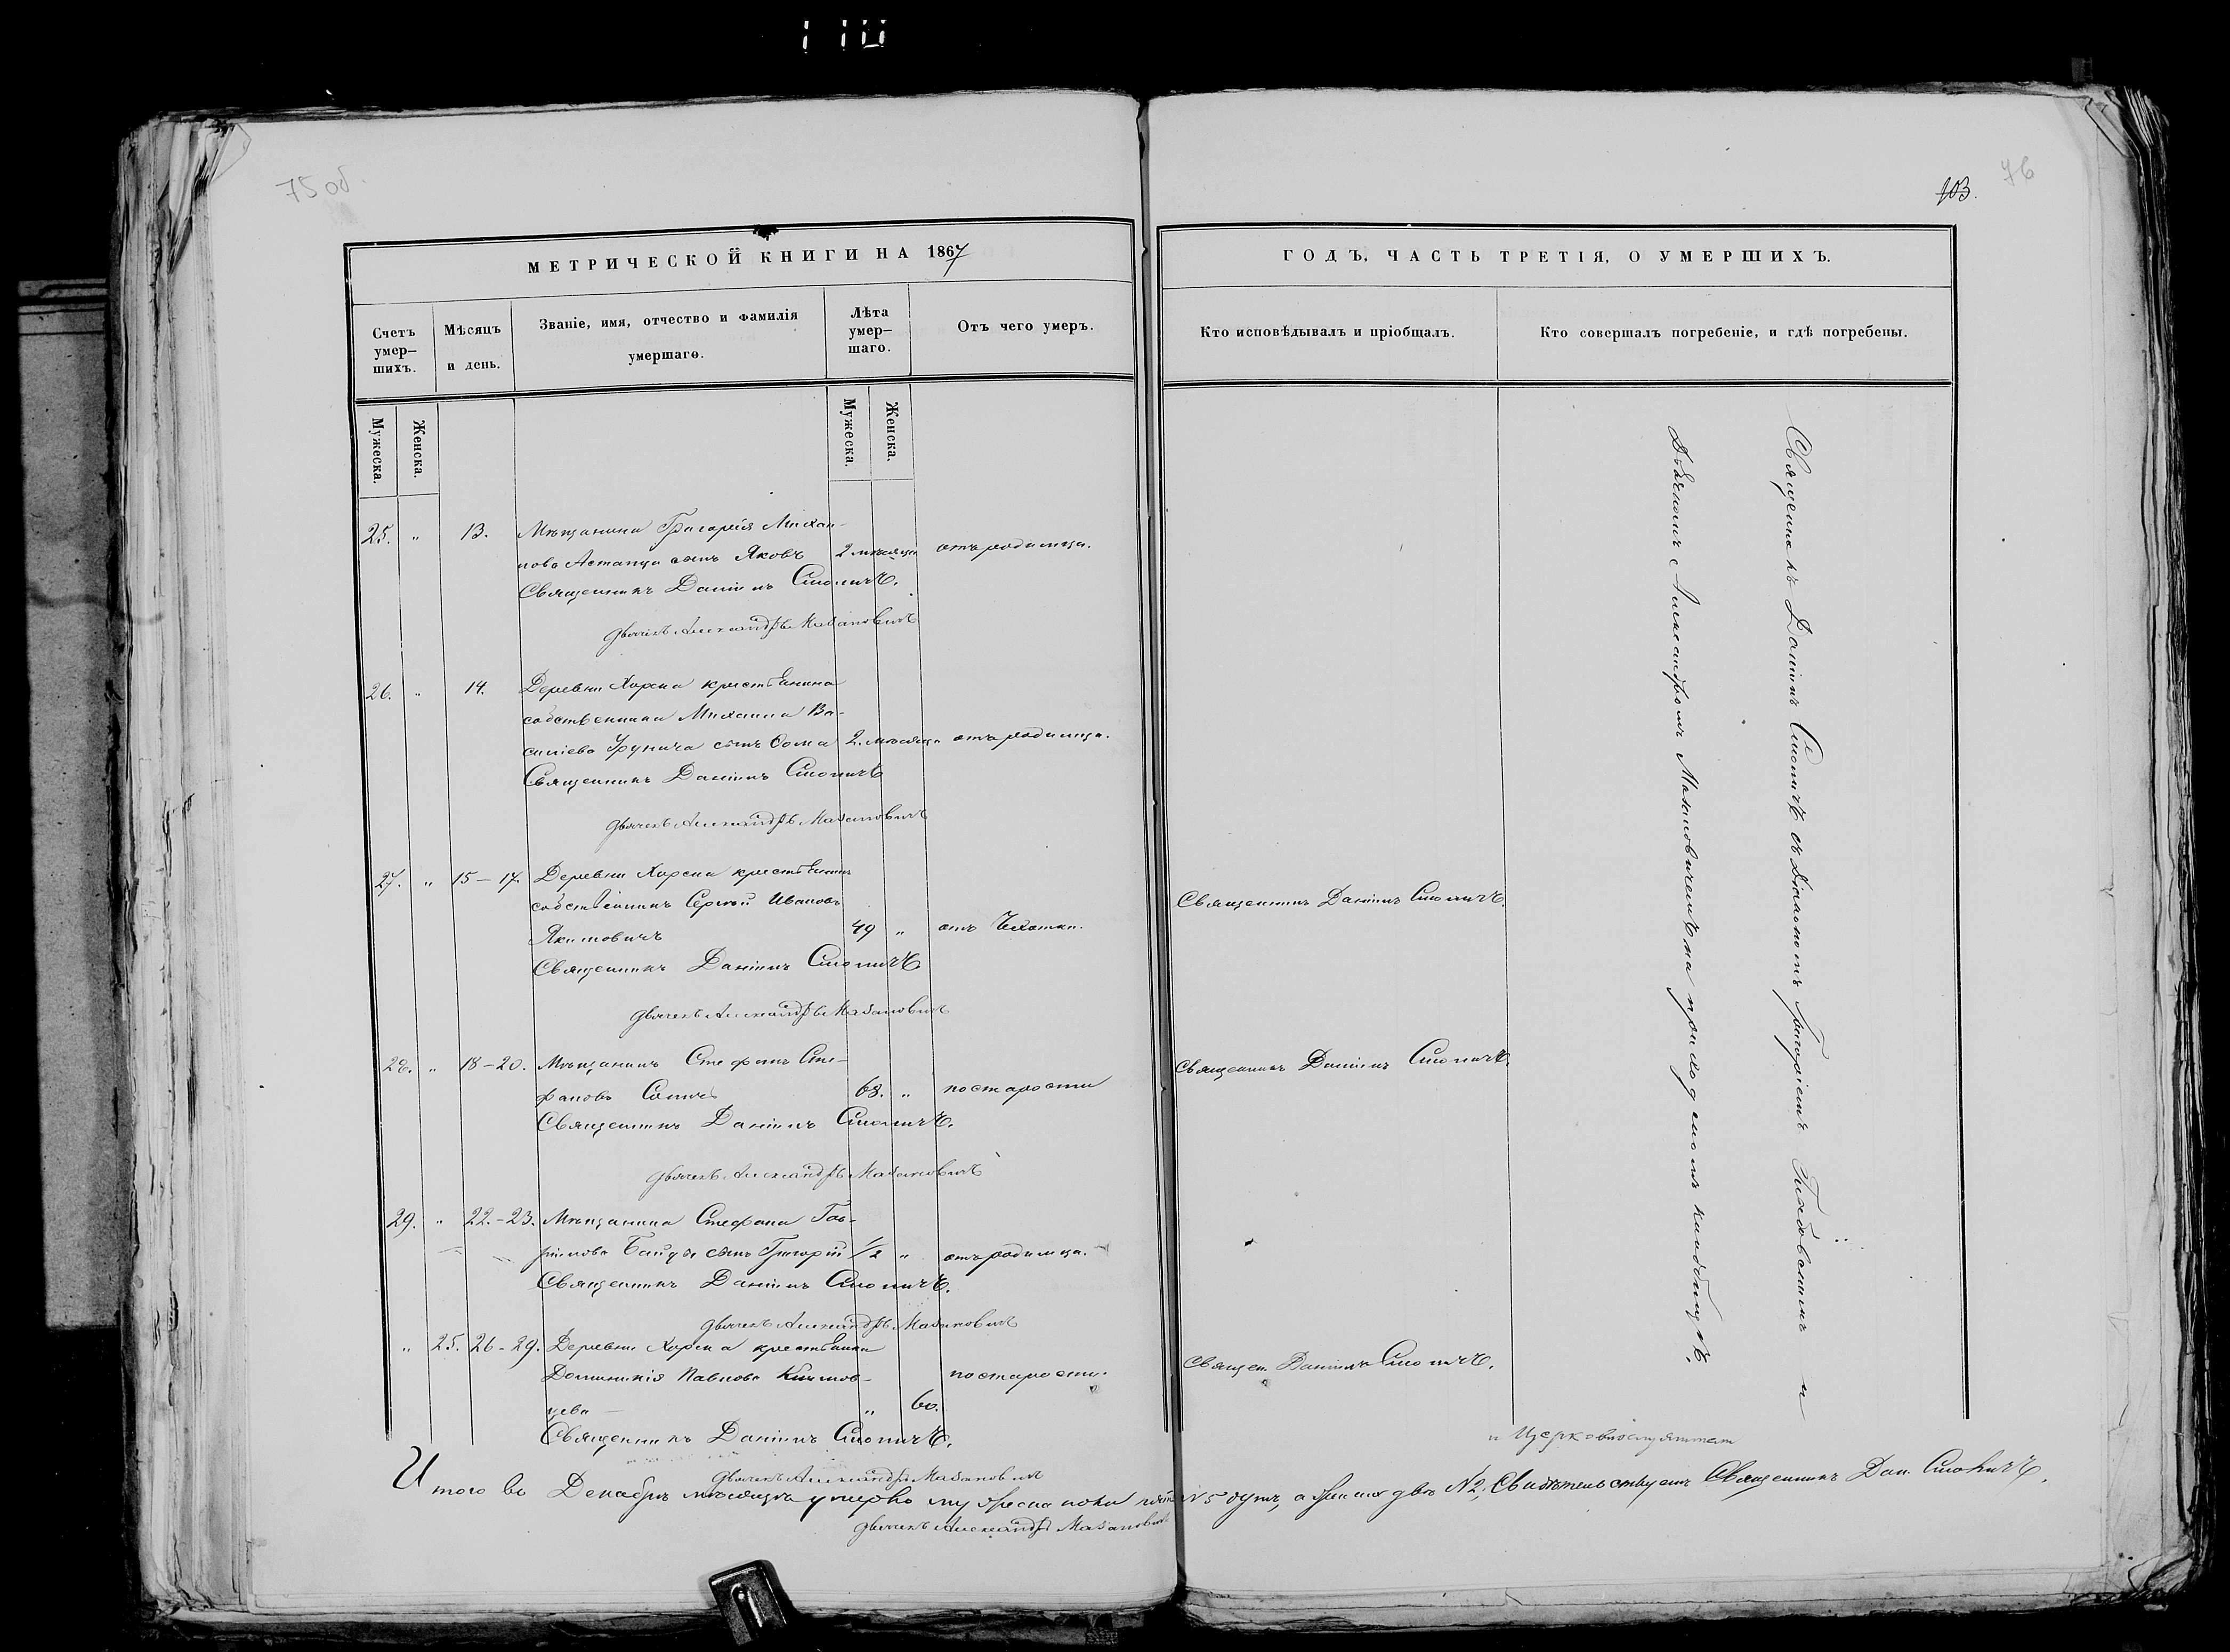 110
75 об.
103.
76
МЕТРИЧЕСКОЙ КНИГИ НА 1867
ГОДЪ, ЧАСТЬ ТРЕТІЯ, О УМЕРШИХЪ.
Счетъ умер-
шихъ.
Мѣсяцъ
и день.
Званіе, имя, отчество и фамилія
умершаго.
Лѣта
умер-
шаго.
Отъ чего умеръ.
Кто исповѣдывалъ и пріобщалъ.
Кто совершалъ погребеніе, и гдѣ погребены.
Мужеска.
Женска.
Мужеска.
Женска.
25. " 13. Мѣщанина Григорія Михаи-
лова сынъ Яковъ 2 мѣсяца отъ родимца.
Священникъ Даніилъ Смоличъ.
Дьячекъ Александръ Мазановичъ
26. " 14. Деревни Хорска крестьянина
собственника Михаила Ва-
силіева сынъ Ѳома 2. мѣсяца отъ родимца.
Священникъ Даніилъ Смоличъ
Дьячекъ Александръ Мазановичъ
27. " 15 – 17. Деревни Хорска крестьянинъ
собственникъ Сергій Ивановъ
Якимовичъ 49 " отъ Чахотки.
Священникъ Даніилъ Смоличъ
Дьячекъ Александръ Мазановичъ
Священникъ Даніилъ Смоличъ.
28. " 18 – 20. Мѣщанинъ Стефанъ Сте-
фановъ 68. " по старости
Священникъ Даніилъ Смоличъ.
Дьячекъ Александръ Мазановичъ
Священникъ Даніилъ Смоличъ.
29. " 22. – 23. Мѣщанина Стефана Гав-
ріилова сынъ Григорій 1/2 " отъ родимца.
Священникъ Даніилъ Смоличъ.
Дьячекъ Александръ Мазановичъ
" 25. 26 – 29. Деревни Хорска крестьянка
Доминикія Павлова
" 60. по старости.
Священникъ Даніилъ Смоличъ.
Дьячекъ Александръ Мазановичъ
Священ. Даніилъ Смоличъ.
Священникъ Даніилъ Смоличъ съ Діакономъ Григоріемъ и
Дьячкомъ Александромъ Мазановичемъ на приходскомъ кладбищѣ.
Итого въ Декабрѣ мѣсяцѣ умерло мужеска пола № 5 душъ, а женска двѣ № 2, Свидѣтельствуетъ Священникъ Дан. Смоличъ.
Дьячекъ Александръ Мазановичъ